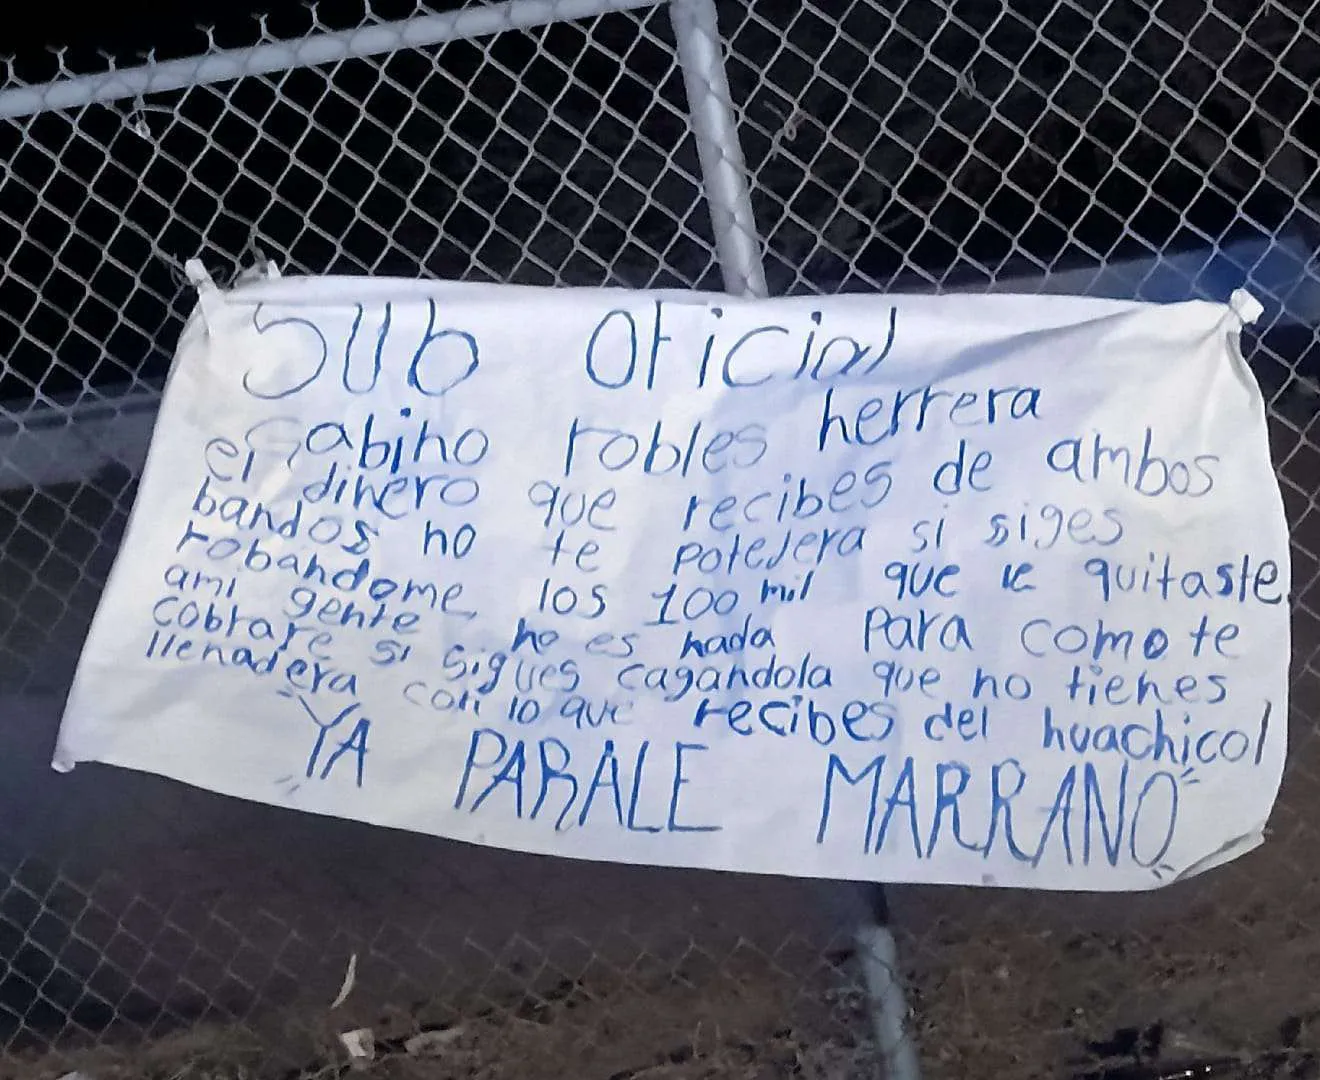 Sub Oficial
Gabino robles herrera
el dinero que recibes de ambos
bandos no te potejera si siges
robandome los 100 mil que le quitaste
ami gente no es nada para como te
cobrare si sigues cagandola que no tienes
llenadera con lo que recibes del huachicol
"YA PARALE MARRANO"